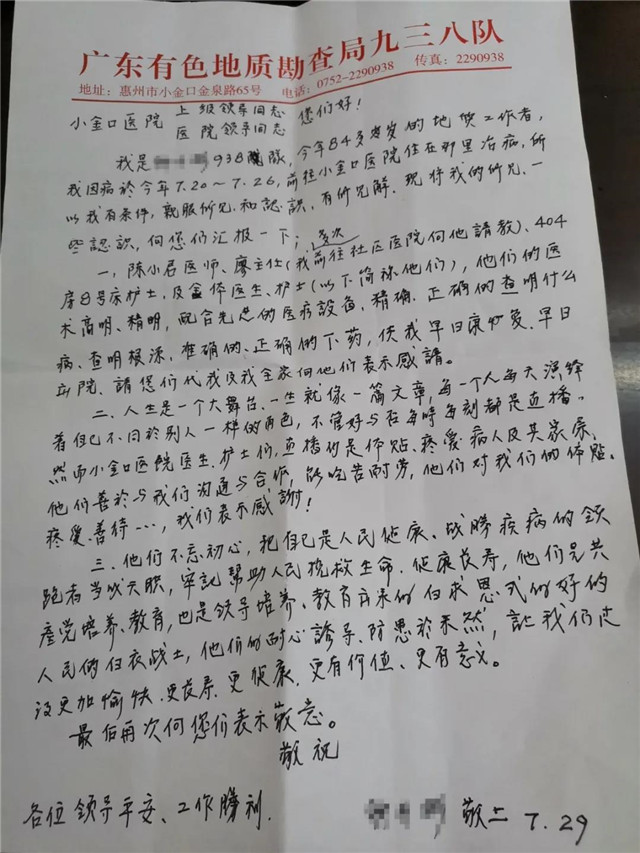 广东有色地质勘查局九三八队
地址：惠州市小金口金泉路65号 电话：0752-2290938 传真：2290938
小金口医院 上级领导同志 您们好！
医院领导同志
我是 938 队，今年84多岁的地质工作者，
我因病於今年7.20～7.26，前往小金口医院住在那里治病，所
以我有条件，親眼所见和認識，有所见解，现将我的所见、一
些認識，向您们汇报一下；
一，陈小君医师、廖主任（我多次前往社区医院向他請教）、404
房8号床护士，及全体医生、护士（以下简称他们），他们的医
术高明、精明，配合先进的医疗設备，精确、正确的查明什么
病、查明根源，准确的、正确的下药，使我早日康复、早日
出院、請您们代我及我全家向他们表示感謝。
二、人生是一个大舞台、一生就像一篇文章，每一个人每天演绎
着自己不同於别人一样的角色，不管好与否每時每刻都是直播。
然而小金口医院医生、护士们，直播的是体贴、疼愛病人及其家属，
他们善於与我们沟通与合作，能吃苦耐劳，他们对我们的体贴、
疼愛、善待…，我们表示感謝！
三、他们不忘初心，把自己是人民健康、战勝疾病的领
跑者当成天职，牢記帮助人民挽救生命、健康長寿，他们是共
產党培养、教育，也是领导培养、教育出来的白求恩式的好的
人民的白衣战士，他们的耐心誘导、防患於未然，让我们过
没更加愉快、更長寿、更健康、更有价值、更有意义。
最后再次向您们表示敬意。
敬祝
各位领导平安、工作勝利．
敬上 7.29